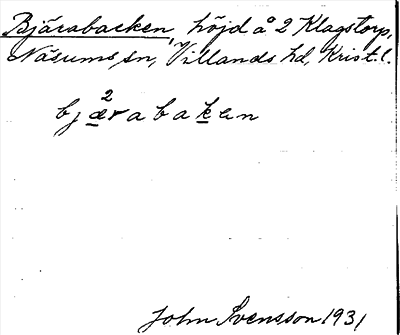 Bjärabacken, höjd å 2 Klagstorp,
Näsums sn, Villands hd, Krist. l.
bjæ²rabaken
John Svensson 1931